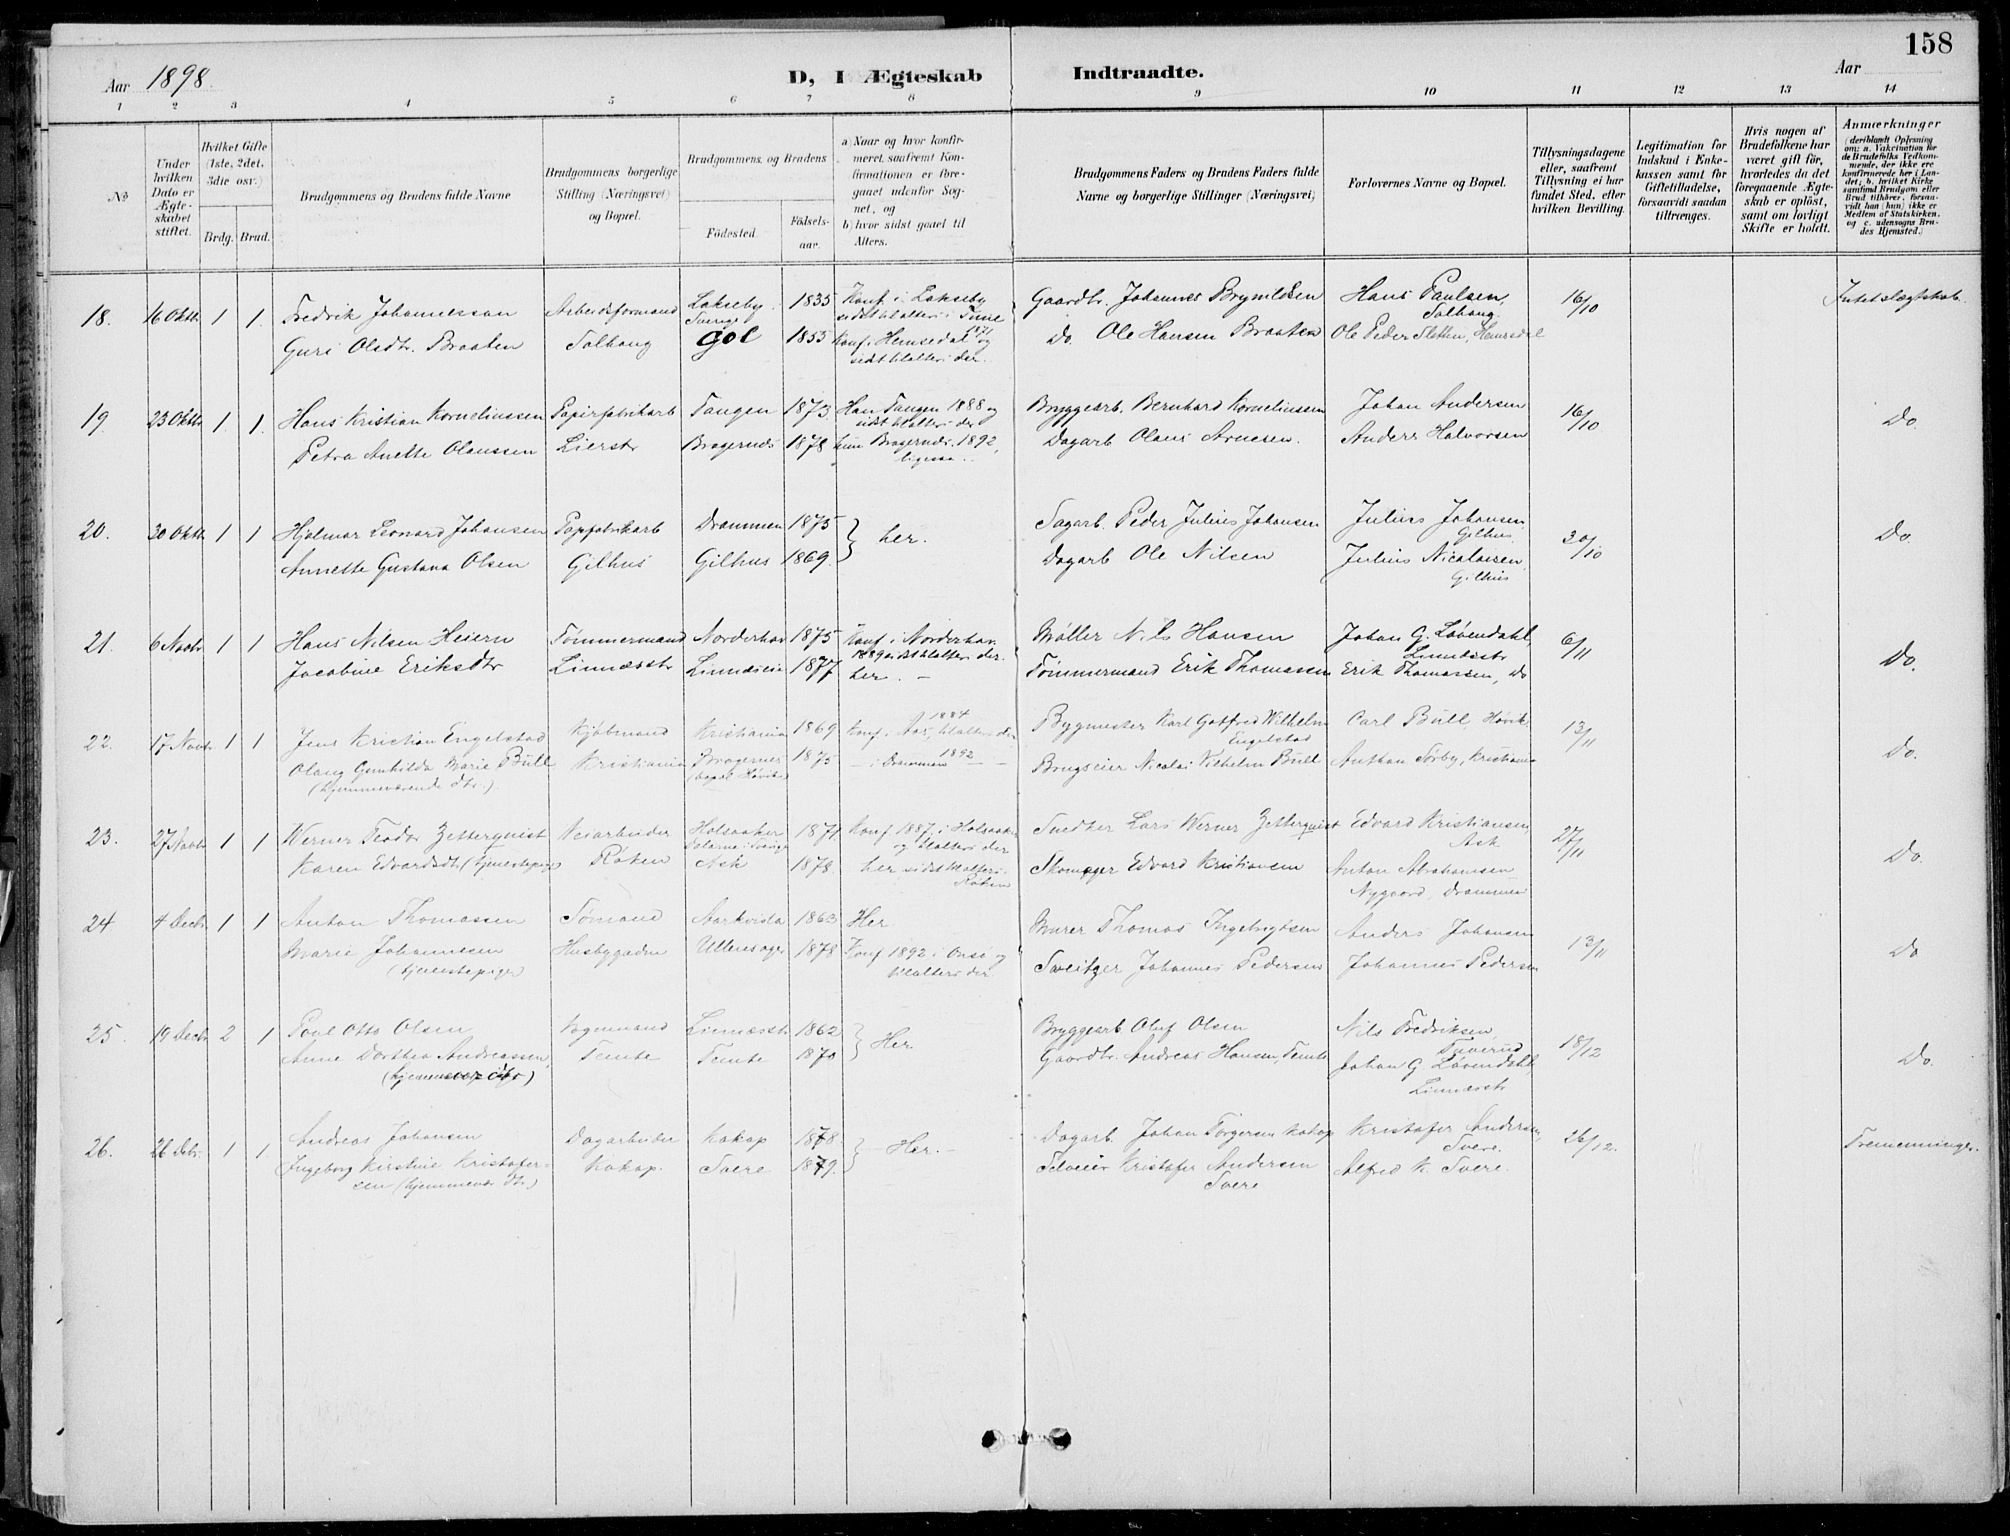 158
Aar 1898.
D, I Ægteskab Indtraadte.
Aar
1 2 3 4 5 6 7 8 9 10 11 12 13 14
№
Under hvilken Dato er Ægteskabet stiftet.
Hvilket Gifte (1ste, 2det, 3die osv.)
Brdg. Brud.
Brudgommens og Brudens fulde Navne
Brudgommens borgerlige Stilling (Næringsvei) og Bopæl.
Brudgommens, og Brudens
Fødested. Fødselsaar.
a) Naar og hvor konfirmeret, saafremt Konfirmationen er foregaaet udenfor Sognet, og
b) hvor sidst gaaet til Alters.
Brudgommens Faders og Brudens Faders fulde Navne og borgerlige Stillinger (Næringsvei)
Forlovernes Navne og Bopæl.
Tillysningsdagene eller, saafremt Tillysning ei har fundet Sted, efter hvilken Bevilling.
Legitimation for Indskud i Enkekassen samt for Giftetilladelse, forsaavidt saadan tiltrænges.
Hvis nogen af Brudefolkene har været gift før, hvorledes da det foregaaende Ægteskab er opløst, samt om lovligt Skifte er holdt.
Anmærkninger
(deriblandt Oplysning om: a. Vakcination for de Brudefolks Vedkommende, der ikke ere konfirmerede her i Landet; b. hvilket Kirkesamfund Brudgom eller Brud tilhører, forsaavidt han (hun) ikke er Medlem af Statskirken, og c. udensogns Brudes Hjemsted.)
18. 16 Oktb. 1 1. Fredrik Johannessan Arbeidsformand Lakseby Sverige 1835 Konf. i Lakseby sidst tilalters i Tune Gaardbr. Johannes Brynildsen Hans Paulsen, Solhaug 16/10 Intet slægtskab.
Guri Olsdtr. Braaten Solhaug Gol 1855 Konf. Hemsedal 1871 og sidst tilalters der. Do. Ole Hansen Braaten Ole Peder Sletten, Hemsedal
19. 23 Oktb. 1. 1. Hans Kristian Korneliussen Papirfabrikarb Tangen 1873. Han Tangen 1888 og sidst tilalters der Bryggearb. Bernhard Korneliussen Johan Andersen 16/10 Do.
Petra Anette Olaussen Lierstr Bragernes 1878 hun Bragernes 1892, ligesaa. Dagarb Olaus Arnesen. Anders Halvorsen
20. 30 Oktb. 1 1 Hjalmar Leonard Johansen Papfabrikarb Drammen 1875 her. Sagarb. Peder Julius Johansen Julius Johansen Gilhus. 30/10 Do.
Annette Gustava Olsen Gilhus Gilhus 1869. Dagarb Ole Nilsen Julius Nicolaisen, Gilhus
21. 6 Novbr 1 1 Hans Nilsen Heiern Tømmermand Norderhov 1875 Konf. i Norderhov 1889 sidst tilalters der. Møller Nils Hansen Johan G. Løvendahl, Linnæsstr 6/11 Do.
Jacobine Eriksdtr Linnæsstr Linnæseie 1877 her. — Tømmermand Erik Thomassen Erik Thomassen, Do
22. 17 Novbr 1 1 Jens Kristian Engelstad Kjøbmand Kristiania 1869 Konf. i Aas, 1884 tilalters der Bygmester Karl Gotfred Wilhelm Engelstad Carl Bull, Høvik 13/11 Do.
Olaug Gunhilda Marie Bull (hjemmeværende dtr.) Kristiania Bragernes (bopæl Høvik) 1875 — i Drammen 1892 — Brugseier Nicolai Wilhelm Bull Anthon Sørby, Kristiania
23. 27 Novbr 1 1 Werner Teodor Zetterquist Veiarbeider Holsaaker Dalarne i Sverige 1871. Konf. 1887. i Holsaaker og tilalters der Snedker Lars Werner Zetterquist Edvard Kristiansen, Ask 27/11 Do.
Karen Edvardsdtr (tjenestepige) Røken Ask 1878 her, sidst tilalters i Røken Skomager Edvard Kristiansen Anton Abrahamsen Nygaard, Drammen
24 4 Decbr. 1 1 Anton Thomassen Sømand Aarkvisla 1863 Her Murer Thomas Ingebrigtsen Anders Johansen 13/11 Do
Marie Johannesen (tjenestepige) Husbygaden Ullensager 1878 Konf 1892 i Onsø og tilalters der Sveitzer Johannes Pedersen Johannes Pedersen
25. 19 Decbr 2 1 Poul Otto Olsen Vognmand Linnæsstr 1862 Her Bryggearb Oluf Olsen Nils Fredriksen, Tuverud 18/12 Do.
Anne Dorthea Andreassen, (hjemmevær dtr) Temte Temte 1870 Gaardbr. Andreas Hansen, Temte Johan G. Løvendahl, Linnæsstr
26. 26 Debr. 1 1. Andreas Johansen Dagarbeider Kakap 1878. Her. Dagarb. Johan Torgersen Kakap Kristofer Andersen, Svere. 26/12. Tremenninger.
Ingeborg Kirstine Kristofersen (hjemmevær dtr) Kakap. Svere 1879. Selveier Kristofer Andersen Svere Alfred K. Svere.